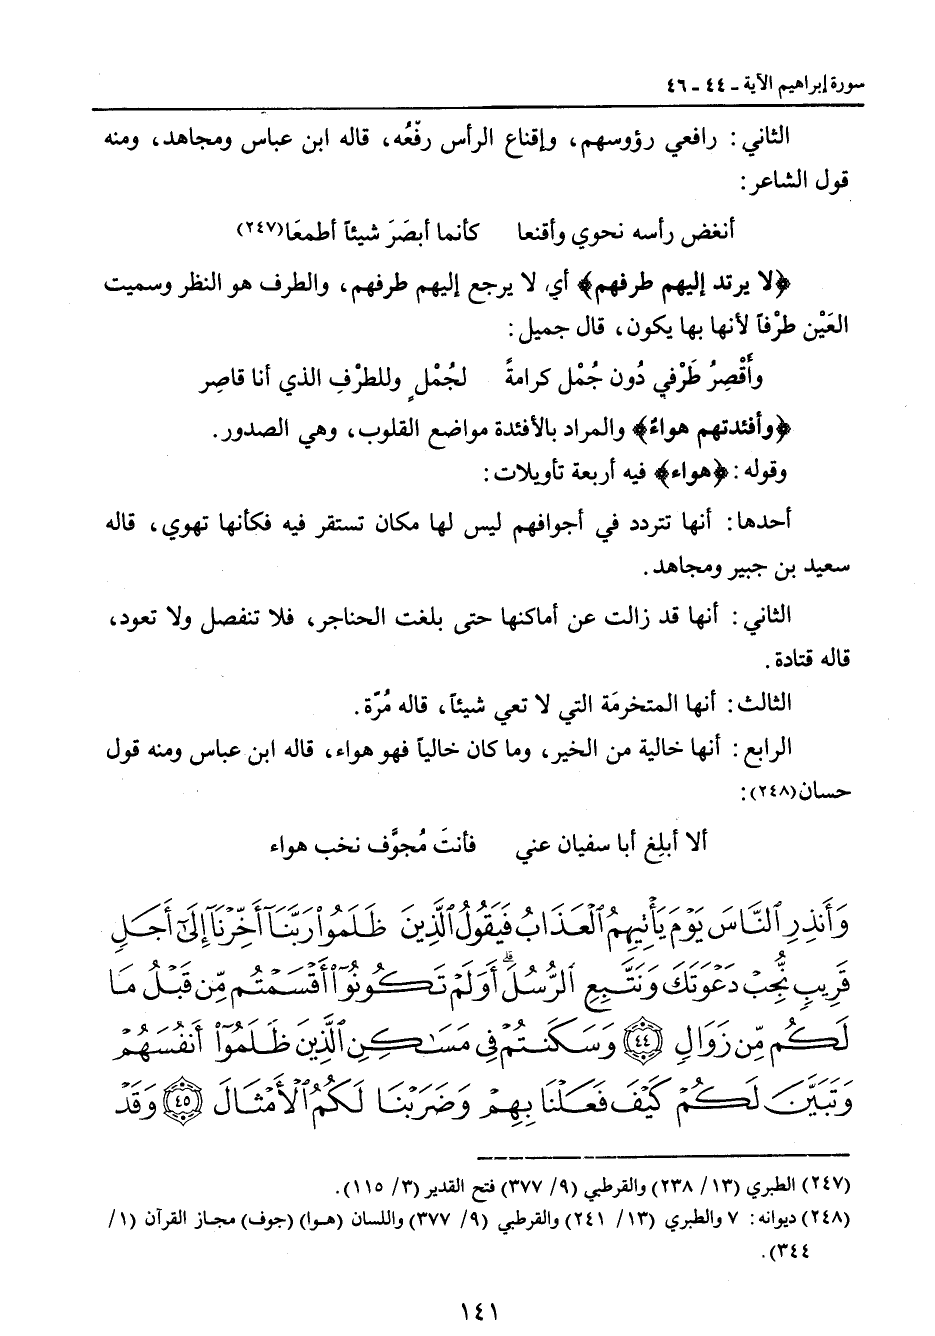 سورة إبراهيم الآية ـ ٤٤ ـ ٤٦
الثاني: رافعي رؤوسهم، وإقناع الرأس رفْعُه، قاله ابن عباس ومجاهد، ومنه
قول الشاعر:
أنغض رأسه نحوي وأقنعا    كأنما أبصَرَ شيئاً أطمعَا(٢٤٧)
﴿لا يرتد إليهم طرفهم﴾ أي لا يرجع إليهم طرفهم، والطرف هو النظر وسميت
العَيْن طرْفاً لأنها بها يكون، قال جميل:
وأَقْصِرُ طَرْفي دُون جُمْل كرامةً    لجُمْلٍ وللطرْفِ الذي أنا قاصِر
﴿وأفئدتهم هواءً﴾ والمراد بالأفئدة مواضع القلوب، وهي الصدور.
وقوله: ﴿هواء﴾ فيه أربعة تأويلات:
أحدها: أنها تتردد في أجوافهم ليس لها مكان تستقر فيه فكأنها تهوي، قاله
سعيد بن جبير ومجاهد.
الثاني: أنها قد زالت عن أماكنها حتى بلغت الحناجر، فلا تنفصل ولا تعود،
قاله قتادة.
الثالث: أنها المتخرمَة التي لا تعي شيئاً، قاله مُرّة.
الرابع: أنها خالية من الخير، وما كان خالياً فهو هواء، قاله ابن عباس ومنه قول
حسان(٢٤٨):
ألا أبلِغ أبا سفيان عني    فأنتَ مُجوَّف نخب هواء
وَأَنذِرِ ٱلنَّاسَ يَوْمَ يَأْتِيهِمُ ٱلْعَذَابُ فَيَقُولُ ٱلَّذِينَ ظَلَمُوا۟ رَبَّنَآ أَخِّرْنَآ إِلَىٰٓ أَجَلٍ
قَرِيبٍ نُّجِبْ دَعْوَتَكَ وَنَتَّبِعِ ٱلرُّسُلَ ۗ أَوَلَمْ تَكُونُوٓا۟ أَقْسَمْتُم مِّن قَبْلُ مَا
لَكُم مِّن زَوَالٍ ﴿٤٤﴾ وَسَكَنتُمْ فِى مَسَـٰكِنِ ٱلَّذِينَ ظَلَمُوٓا۟ أَنفُسَهُمْ
وَتَبَيَّنَ لَكُمْ كَيْفَ فَعَلْنَا بِهِمْ وَضَرَبْنَا لَكُمُ ٱلْأَمْثَالَ ﴿٤٥﴾ وَقَدْ
(٢٤٧) الطبري (١٣/ ٢٣٨) والقرطبي (٩/ ٣٧٧) فتح القدير (٣/ ١١٥).
(٢٤٨) ديوانه: ٧ والطبري (١٣/ ٢٤١) والقرطبي (٩/ ٣٧٧) واللسان (هوا) (جوف) مجاز القرآن (١/
٣٤٤).
١٤١